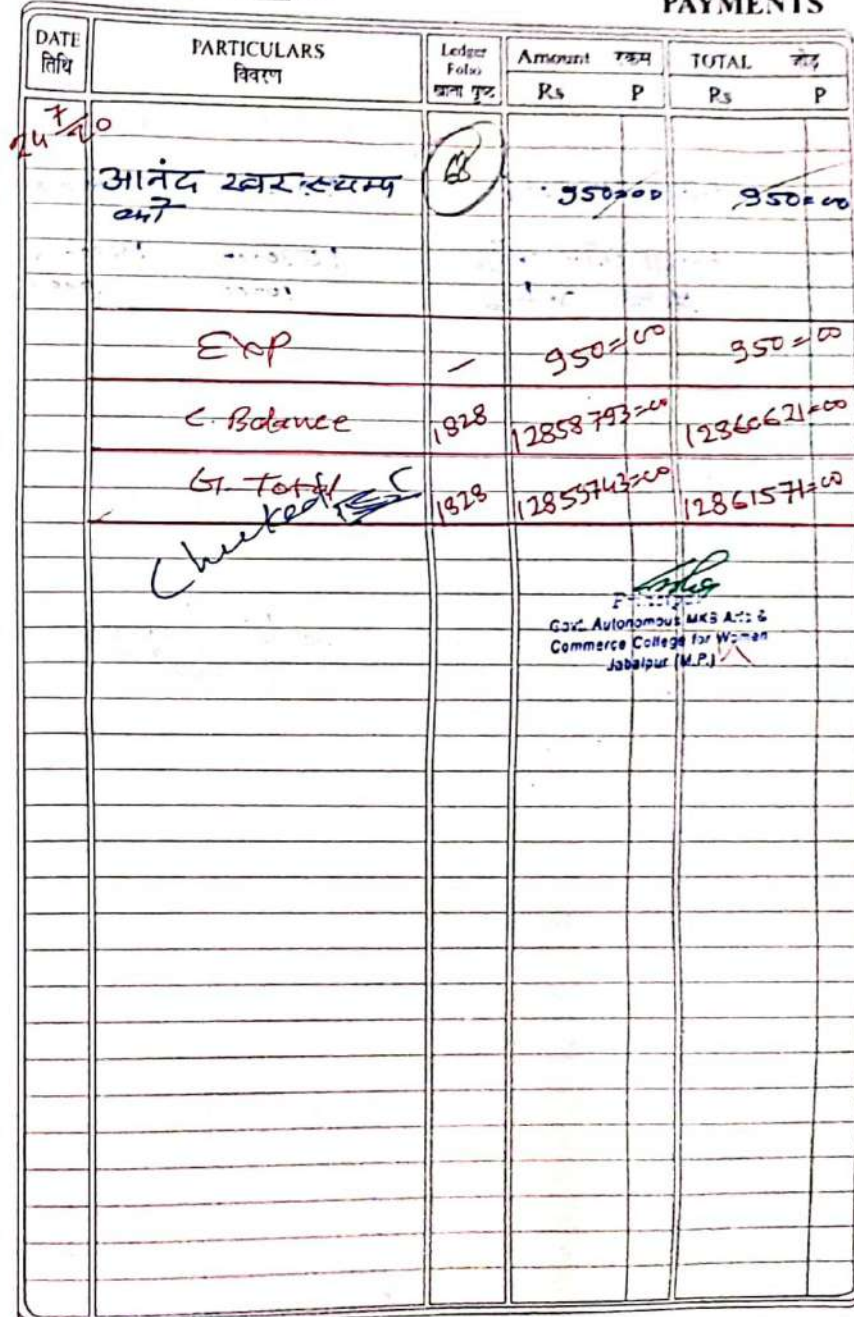 PAYMENTS
DATE PARTICULARS Ledger Folio Amount रकम TOTAL जोड़
तिथि विवरण खाता पृष्ठ Rs P Rs P
24/7/20
आनंद रबर स्टाम्प 68 950=00 950=00
को
Exp — 950=00 950=00
C. Balance 1828 12858793=00 12860621=00
G. Total 1828 12859743=00 12861571=00
Checked
Principal
Govt. Autonomous MKB Arts &
Commerce College for Women
Jabalpur (M.P.)